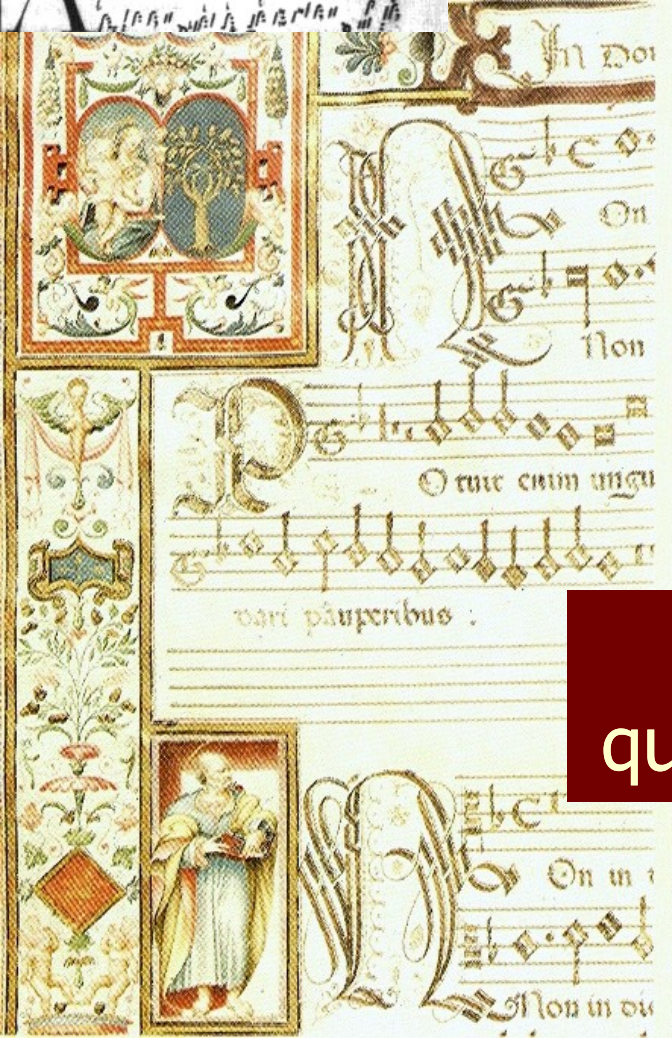 In Do
On
Non
O tuit enim ungu
dari pauperibus :
qu
On in
Non in di